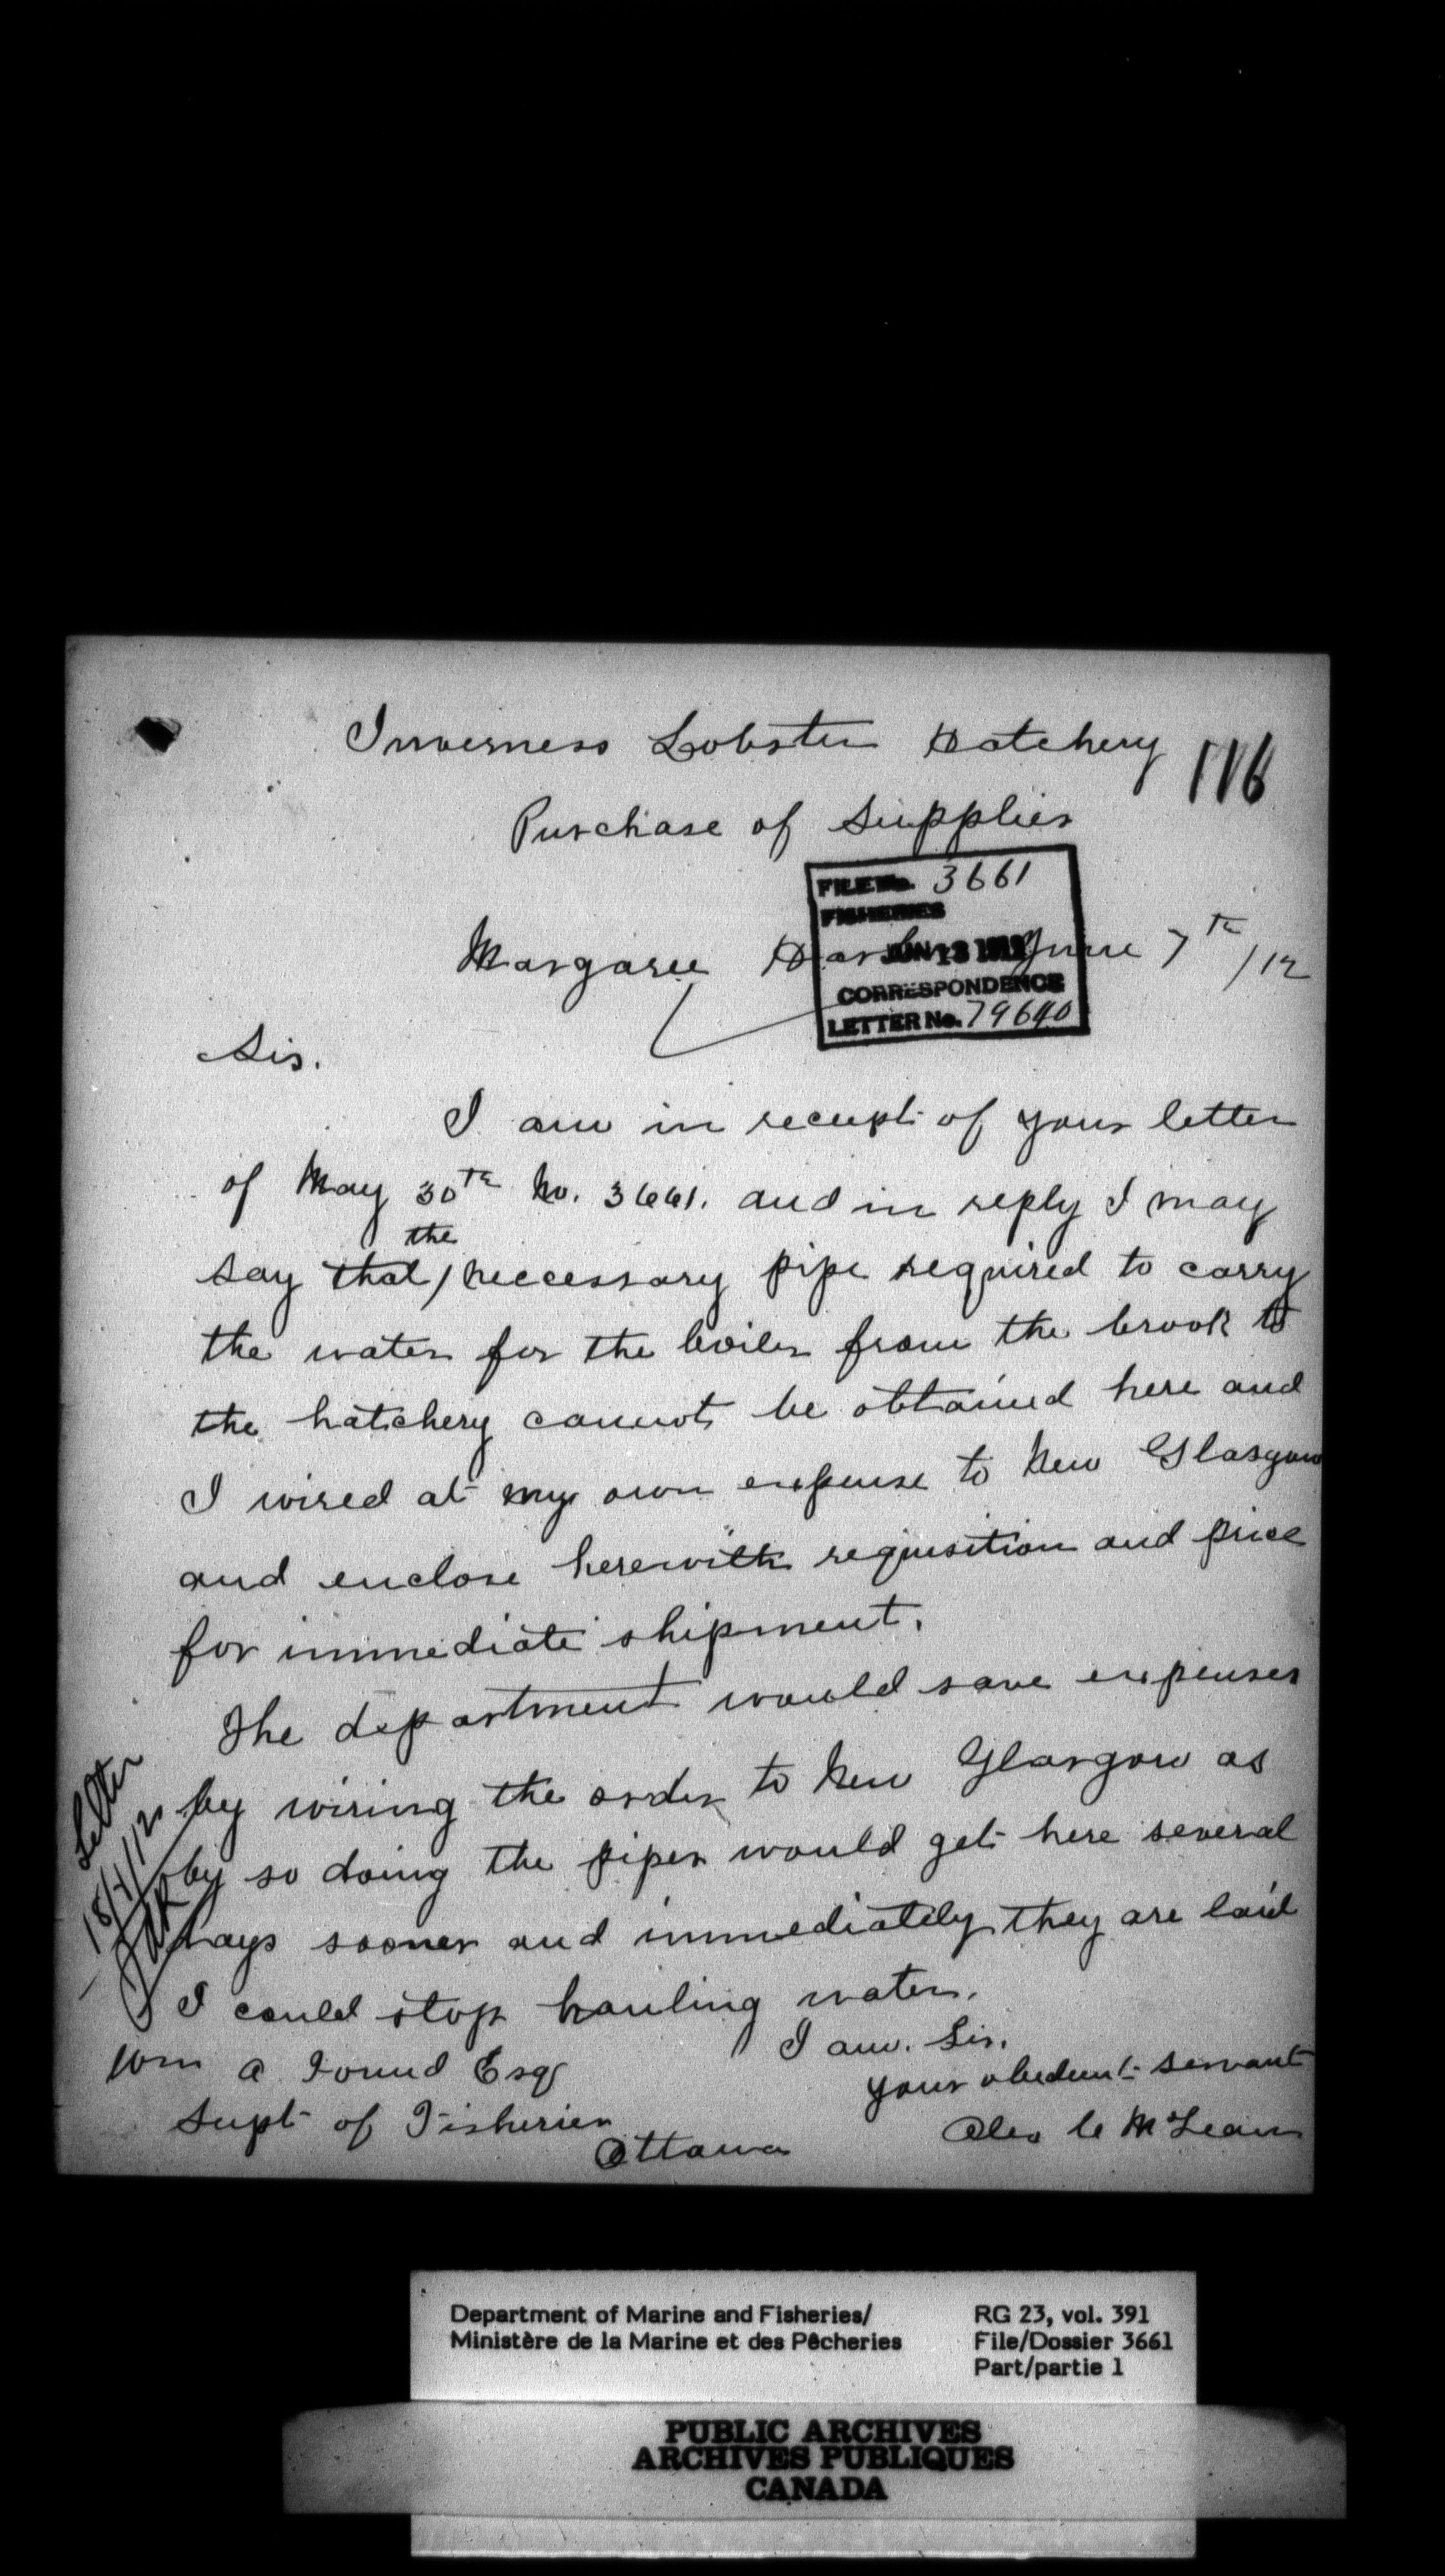 Inverness Lobster Hatchery
116
Purchase of Supplies
FILE No. 3661
FISHERIES
JUN 13 1912
CORRESPONDENCE
LETTER No. 79640
Margaree Harbor June 7th/12
Sir.
I am in receipt of your letter
of May 30th No. 3661. and in reply I may
the
say that / neccessary pipe required to carry
the water for the boiler from the brook to
the hatchery cannot be obtained here and
I wired at my own expense to New Glasgow
and enclose herewith requisition and price
for immediate shipment.
The department would save expenses
by wiring the order to New Glasgow as
by so doing the pipes would get here several
days sooner and immediately they are laid
I could stop hauling water.
Letter
I am. Sir.
Your obedient servant
Alex C McLean
Wm A Found Esq
Supt of Fisheries
Ottawa
Department of Marine and Fisheries/
Ministère de la Marine et des Pêcheries
RG 23, vol. 391
File/Dossier 3661
Part/partie 1
PUBLIC ARCHIVES
ARCHIVES PUBLIQUES
CANADA